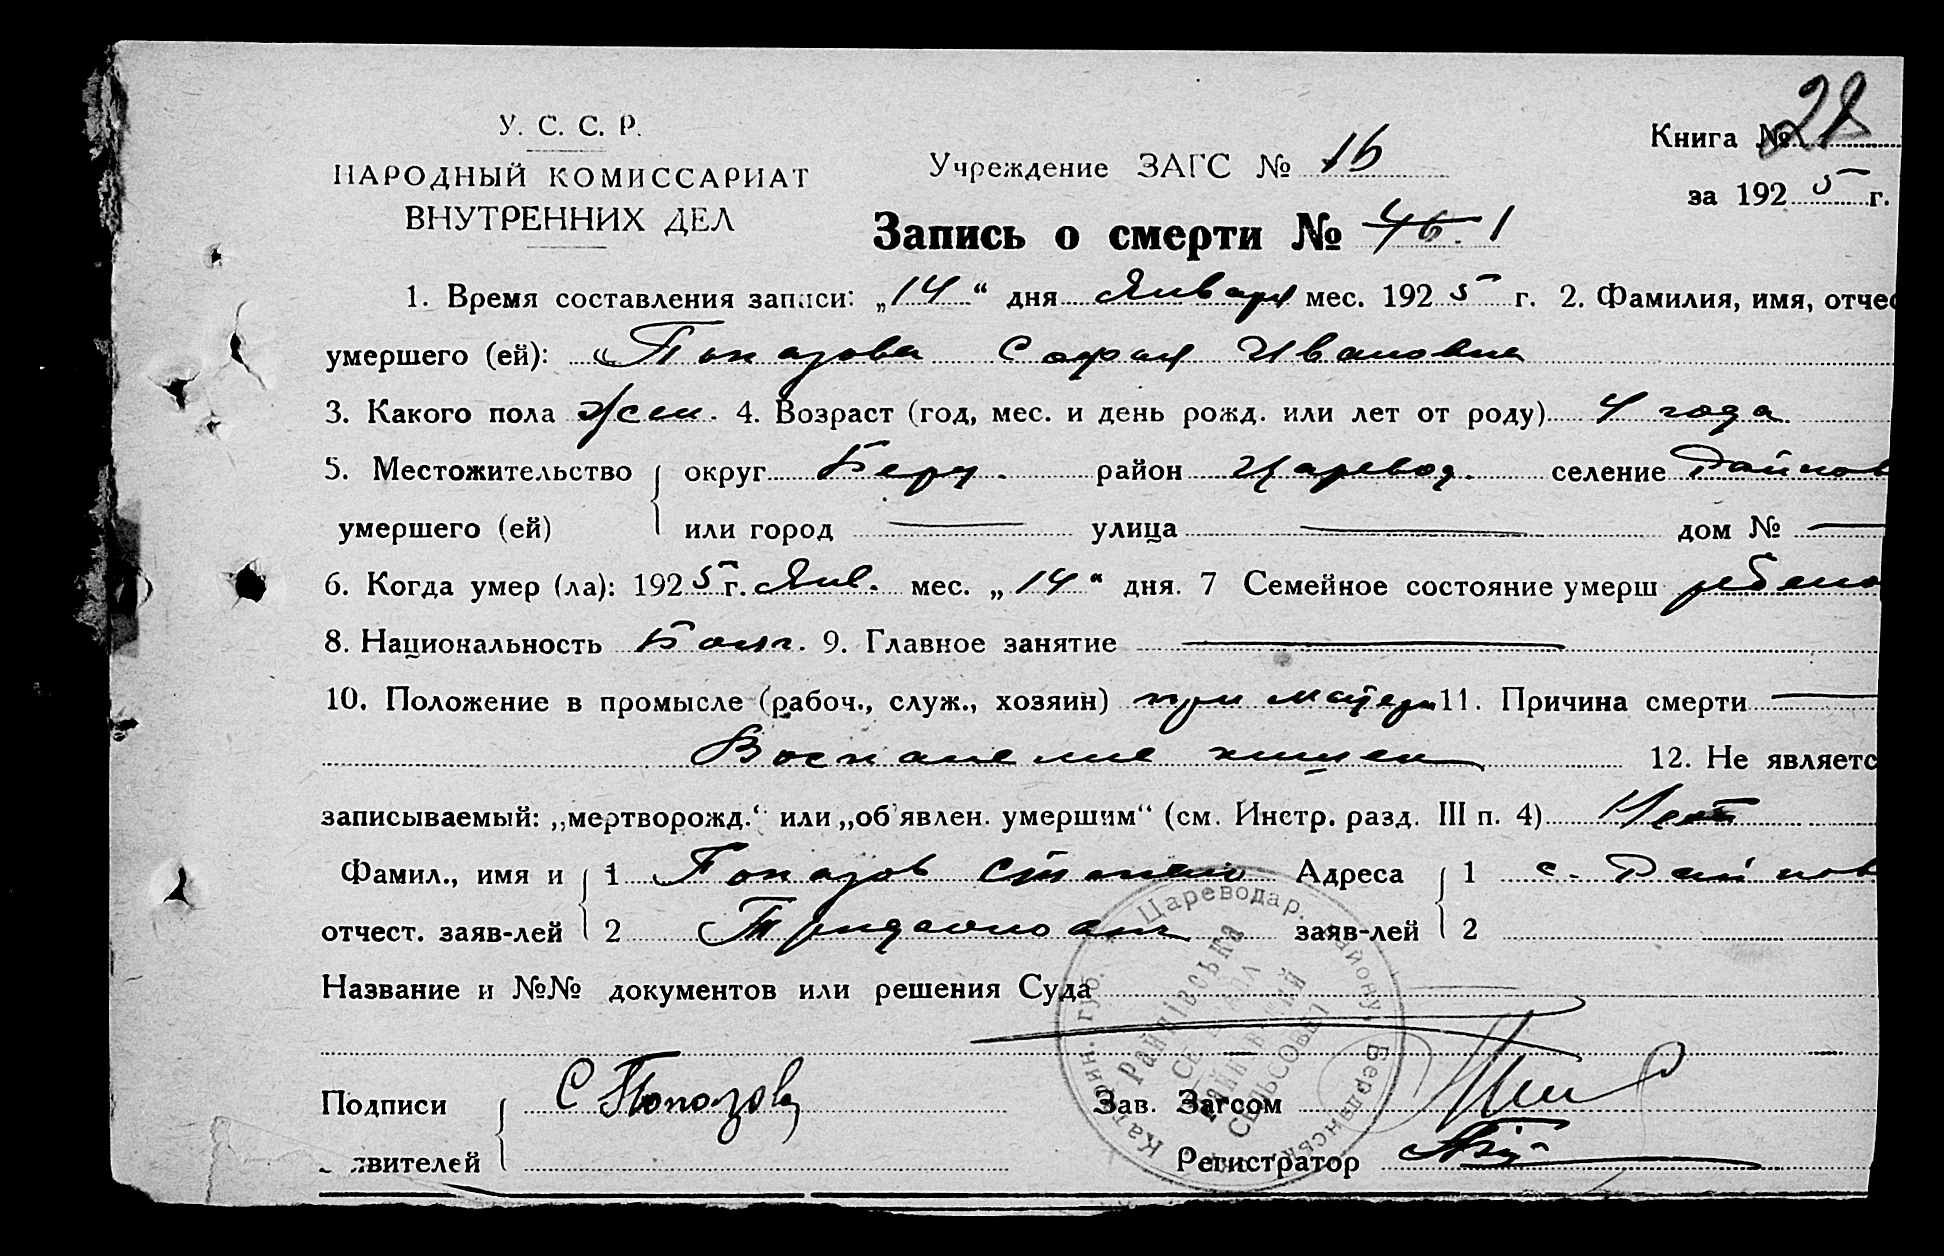 У. С. С. Р.
НАРОДНЫЙ КОМИССАРИАТ
ВНУТРЕННИХ ДЕЛ
Учреждение ЗАГС № 16
Книга № 28
за 1925 г.
Запись о смерти № 46. 1
1. Время составления записи: „14“ дня Января мес. 1925 г. 2. Фамилия, имя, отчес
умершего (ей): Попазова София Ивановна
3. Какого пола жен. 4. Возраст (год, мес. и день рожд. или лет от роду) 4 года
5. Местожительство округ Берд. район Царевод. селение Райнов
умершего (ей) или город — улица — дом № —
6. Когда умер (ла): 1925 г. Янв. мес. „14“ дня. 7 Семейное состояние умерш ребено
8. Национальность Болг. 9. Главное занятие —
10. Положение в промысле (рабоч., служ., хозяин) при матери 11. Причина смерти —
Воспаление кишек 12. Не являетс
записываемый: „мертворожд.“ или „об'явлен. умершим“ (см. Инстр. разд. III п. 4) Нет
Фамил., имя и 1 Попазов Степан Адреса 1 с. Райнов
отчест. заяв-лей 2 заяв-лей 2
Название и №№ документов или решения Суда
Подписи С Попазов Зав. Загсом
вителей Регистратор
Катерин. губ. Цареводар. району, Бердянськ
Райнівська
СЕЛЬСОВЕТ